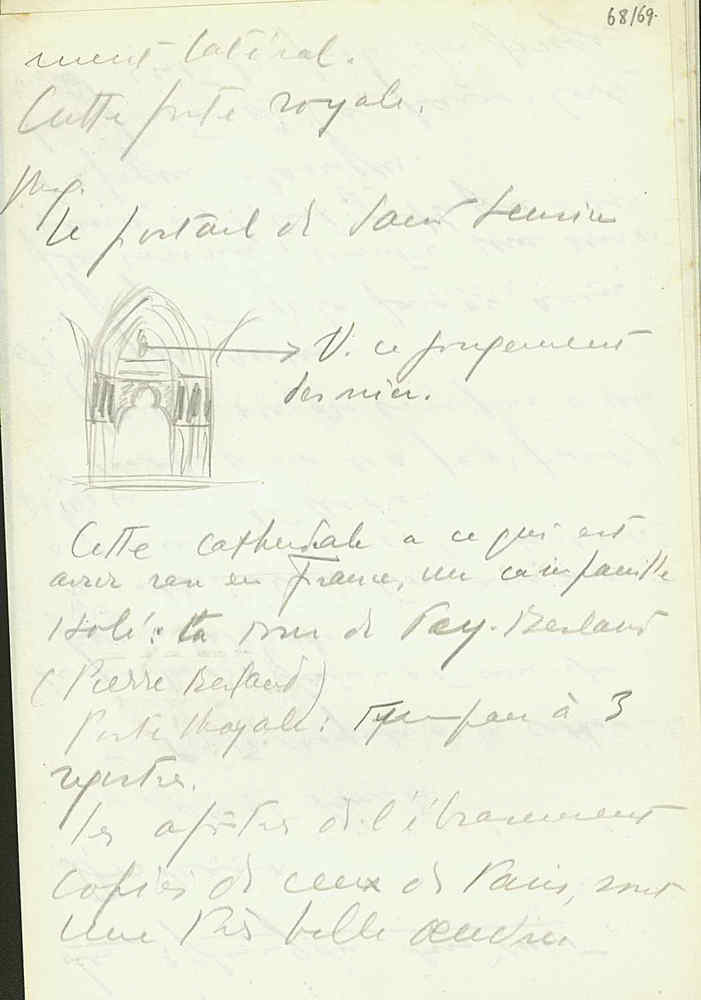 68/69.
ment latéral.
Cette porte royale.
Le portail de Saint Seurin
V. ce jugement
dernier.
Cette cathédrale a ce qui est
assez rare en France, un campanile
isolé: la tour de Pey-Berland
(Pierre Berland)
Porte Royale: Tympan à 3
registres.
Les apôtres de l'ébrasement
copiés de ceux de Paris, sont
une très belle œuvre